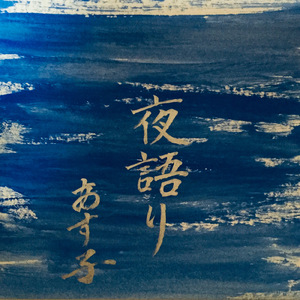 夜語り
あすみ